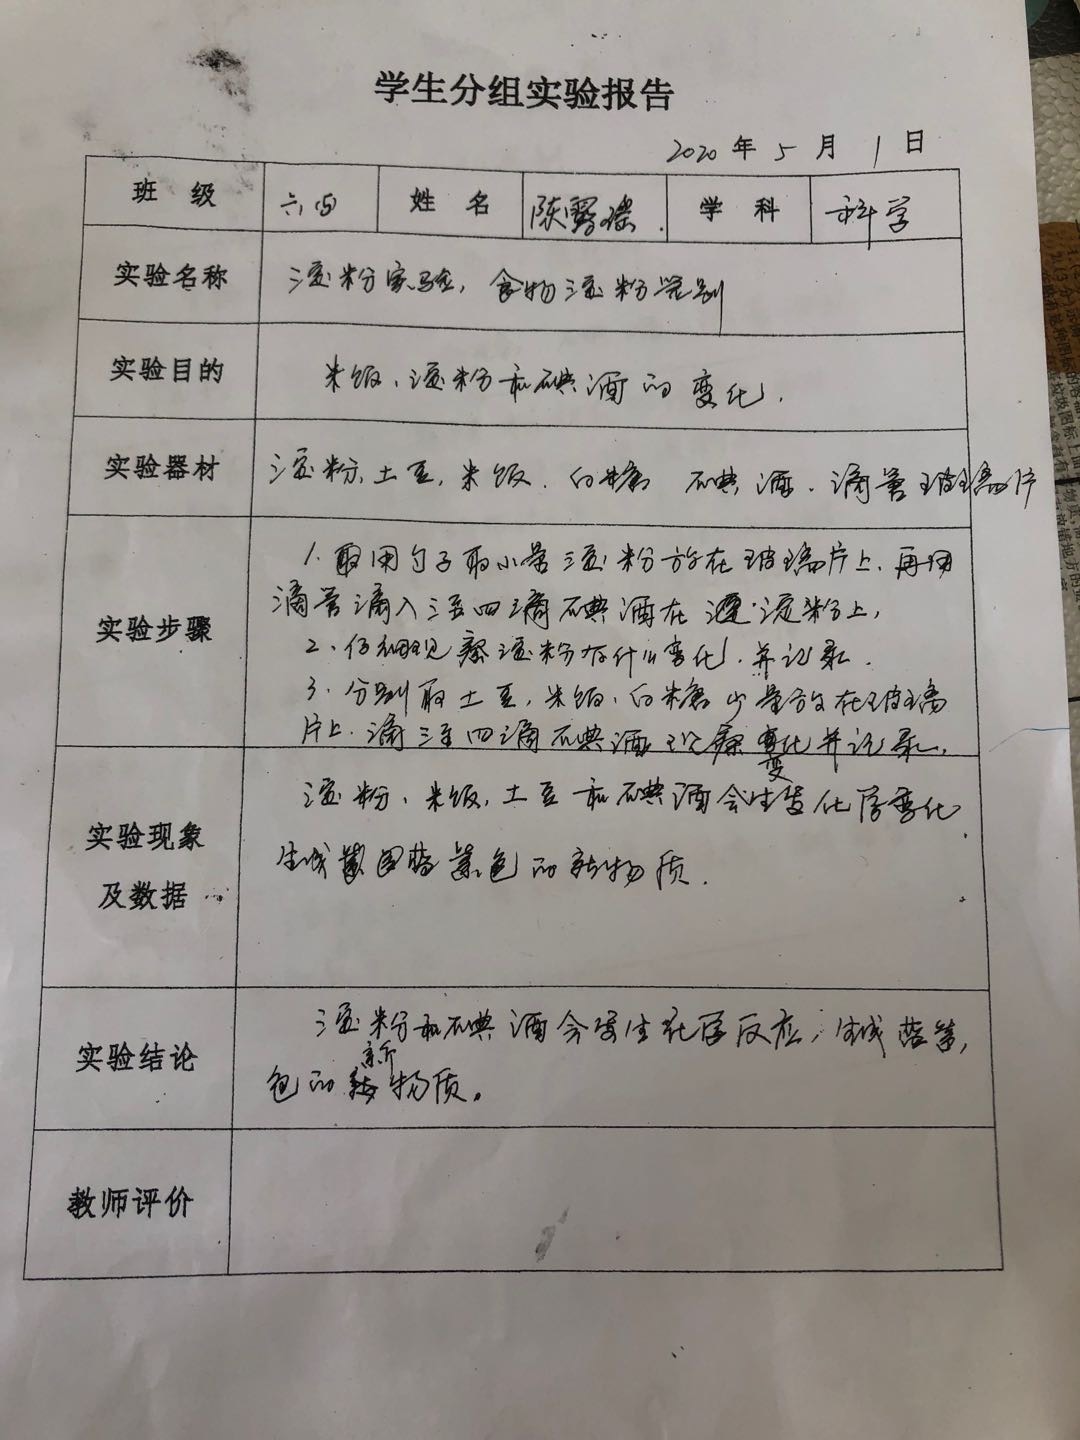 学生分组实验报告
2020 年 5 月 1 日
班 级 六四 姓 名 陈露瑶. 学 科 科学
实验名称 淀粉实验,食物淀粉识别
实验目的 米饭、淀粉和碘酒的变化.
实验器材 淀粉,土豆,米饭.白糖 碘酒.滴管玻璃片
实验步骤
1.取用勺子取小量淀粉放在玻璃片上.再用
滴管滴入三至四滴碘酒在淀粉上,
2、仔细观察淀粉有什么变化.并记录.
3.分别取土豆,米饭,白糖少量放在玻璃
片上.滴三至四滴碘酒观察变化并记录.
变
实验现象
及数据
淀粉、米饭,土豆和碘酒会生发化学变化
生成蓝紫色的新物质.
实验结论
淀粉和碘酒会发生化学反应,生成蓝紫,
新
色的物质。
教师评价